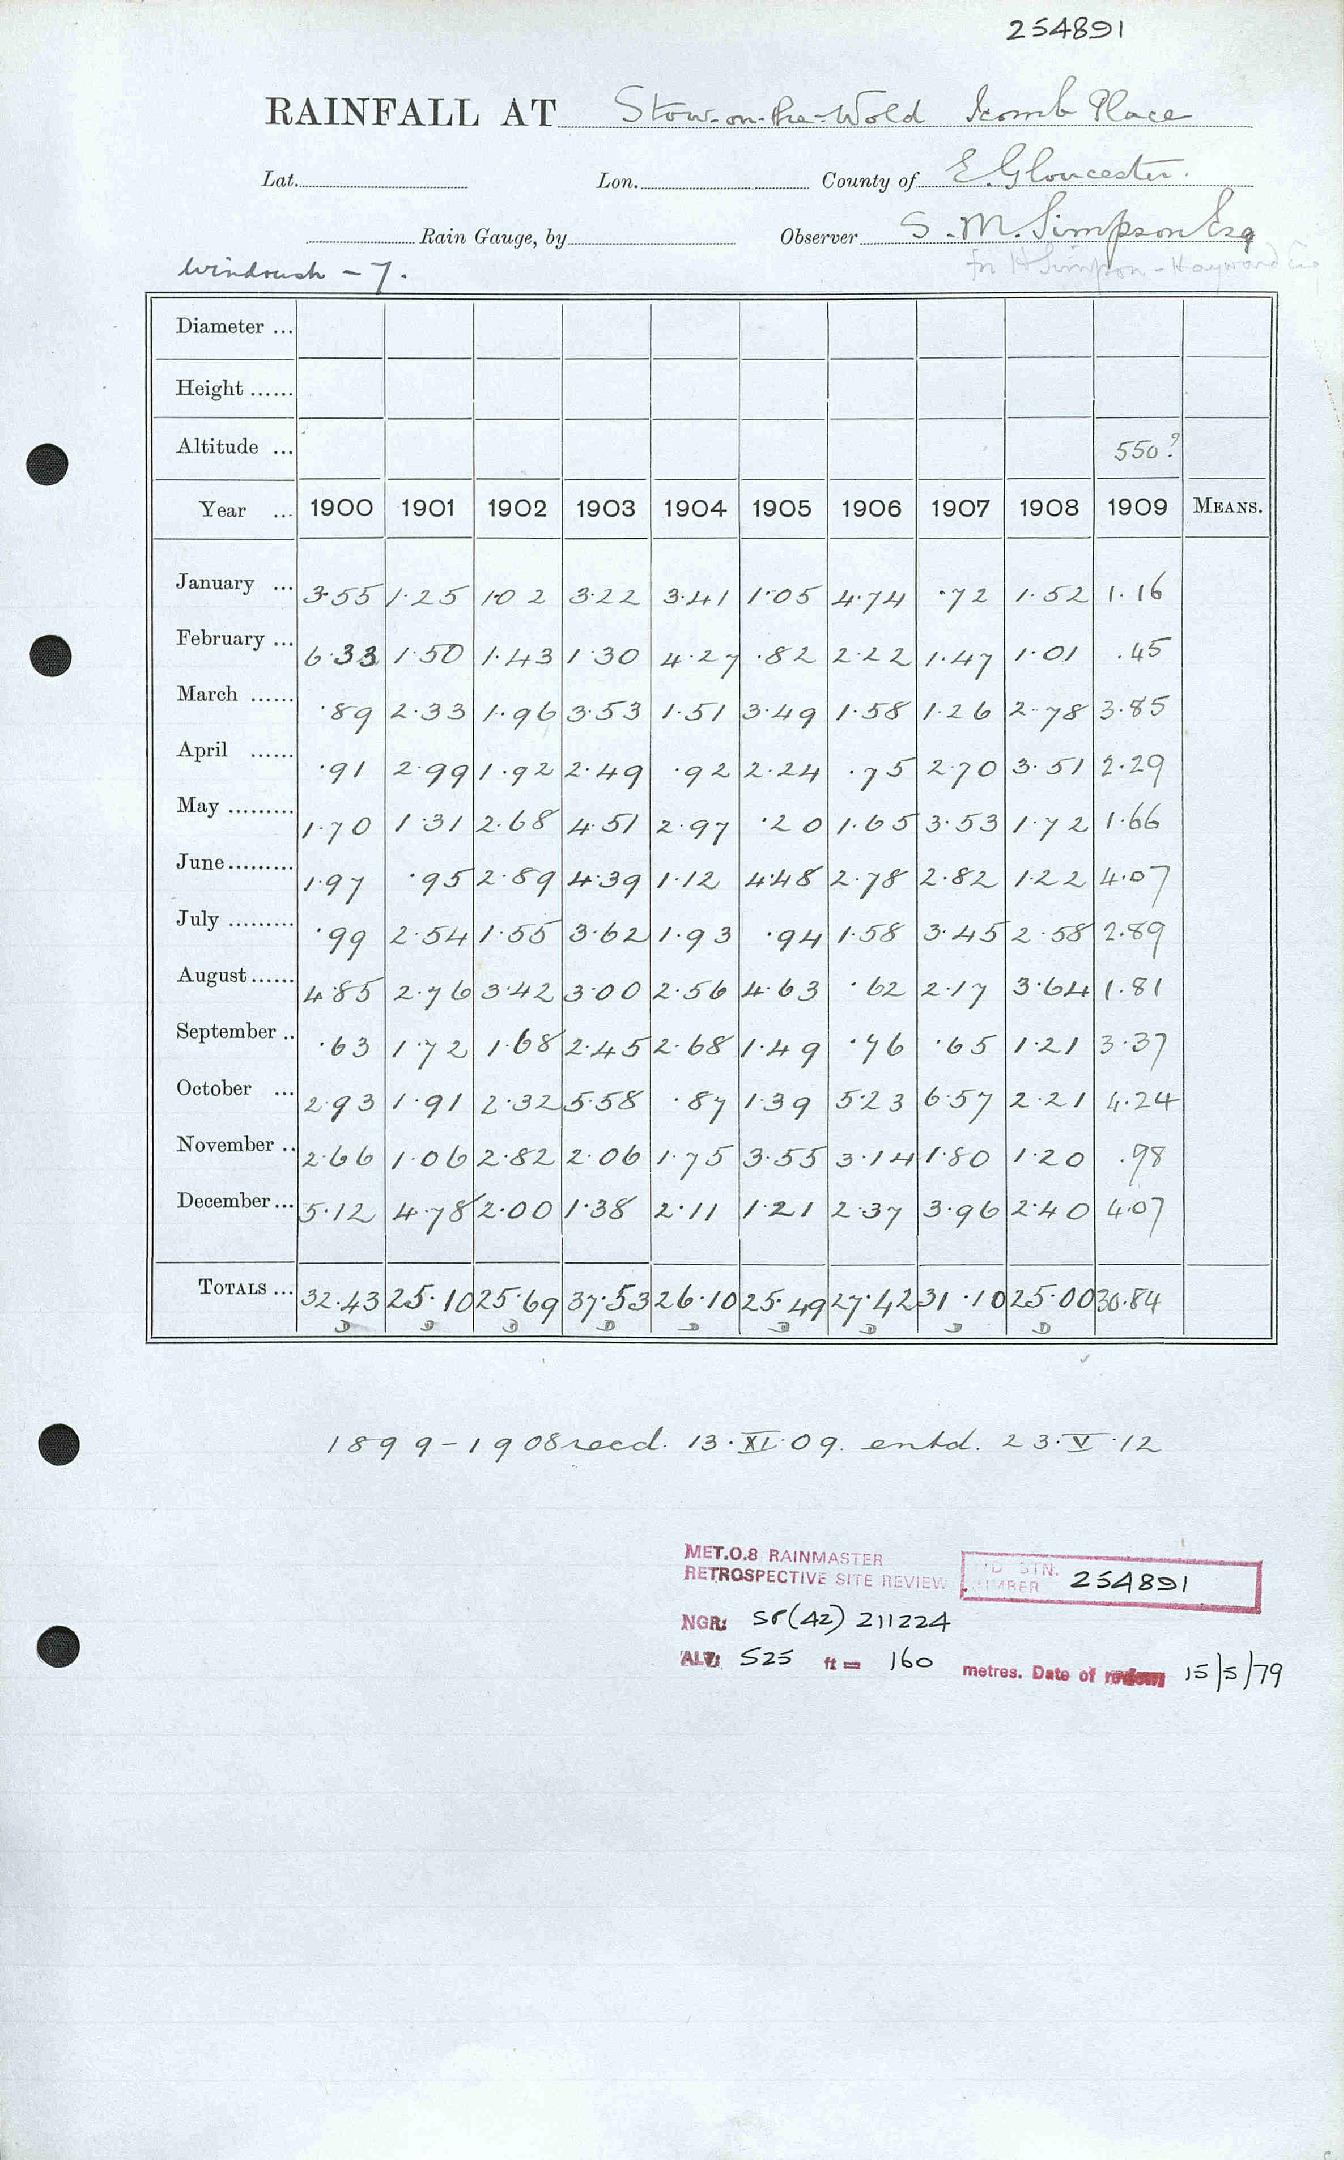 254891
RAINFALL AT Stow-on-the-Wold Icomb Place
Lat. Lon. County of E. Gloucester.
Rain Gauge, by Observer S. M. Simpson Esq
for H Simpson-Hayward Esq
Windrush - 7.
Diameter ...
Height ......
Altitude ... 550?
Year ... 1900 1901 1902 1903 1904 1905 1906 1907 1908 1909 MEANS.
January ... 3.55 1.25 1.02 3.22 3.41 1.05 4.74 .72 1.52 1.16
February ... 6.33 1.50 1.43 1.30 4.27 .82 2.22 1.47 1.01 .45
March ...... .89 2.33 1.96 3.53 1.51 3.49 1.58 1.26 2.78 3.85
April ...... .91 2.99 1.92 2.49 .92 2.24 .75 2.70 3.51 2.29
May ......... 1.70 1.31 2.68 4.51 2.97 .20 1.65 3.53 1.72 1.66
June ......... 1.97 .95 2.89 4.39 1.12 4.48 2.78 2.82 1.22 4.07
July ......... .99 2.54 1.55 3.62 1.93 .94 1.58 3.45 2.58 2.89
August ...... 4.85 2.76 3.42 3.00 2.56 4.63 .62 2.17 3.64 1.81
September .. .63 1.72 1.68 2.45 2.68 1.49 .76 .65 1.21 3.37
October ... 2.93 1.91 2.32 5.58 .87 1.39 5.23 6.57 2.21 4.24
November .. 2.66 1.06 2.82 2.06 1.75 3.55 3.14 1.80 1.20 .98
December ... 5.12 4.78 2.00 1.38 2.11 1.21 2.37 3.96 2.40 4.07
TOTALS ... 32.43 25.10 25.69 37.53 26.10 25.49 27.42 31.10 25.00 30.84
D D D D D D D D D
1899-1908 recd. 13.XI.09. entd. 23.V.12
MET.O.8 RAINMASTER
RETROSPECTIVE SITE REVIEW STN. NUMBER 254891
NGR: SP(42) 211224
ALT: 525 ft = 160 metres. Date of review 15/5/79